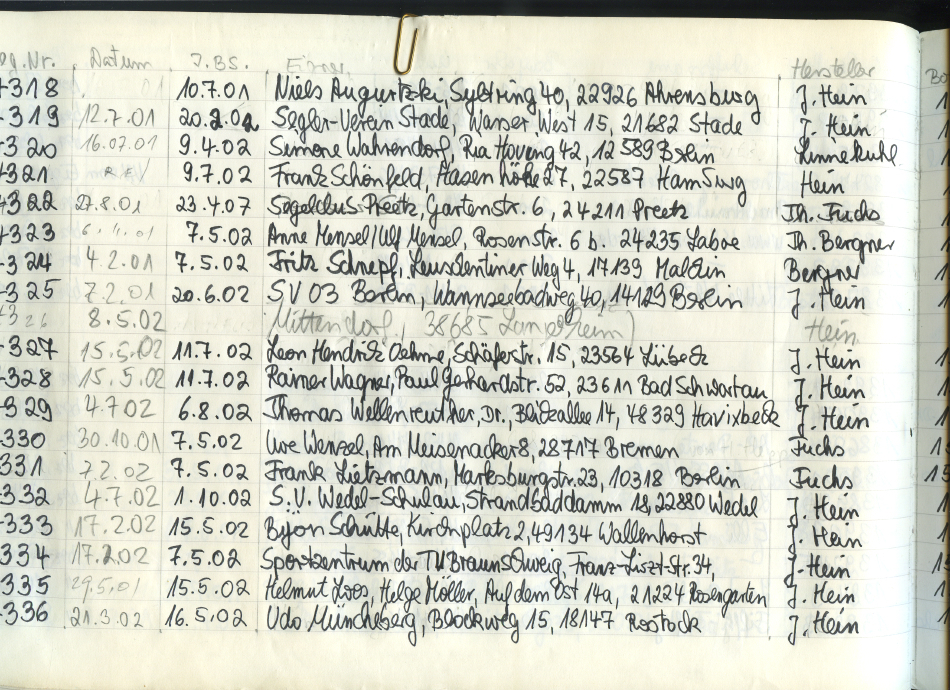 g.Nr. Datum J.BS. Eigner Hersteller
318 10.7.01 Niels Augurtzki, Syltring 40, 22926 Ahrensburg J. Hein
319 12.7.01 20.2.02 Segler-Verein Stade, Wasser West 15, 21682 Stade J. Hein
320 16.07.01 9.4.02 Simone Wahrendorf, 42, 12589 Berlin Linnekuhl
321 9.7.02 Frank Schönfeld, Hasenhöhe 27, 22587 Hamburg Hein
322 27.8.01 23.4.07 Segelclub Preetz, Gartenstr. 6, 24211 Preetz Th. Fuchs
323 7.5.02 Anne Mensel/Ulf Mensel, Rosenstr. 6 b. 24235 Laboe Th. Bergner
324 4.2.01 7.5.02 Fritz Schrepf, Weg 4, 17139 Malchin Bergner
325 7.2.01 20.6.02 SV 03 Berlin, Wannseebadweg 40, 14129 Berlin J. Hein
326 8.5.02 Mittendorf, 38685 Langelsheim) Hein
327 15.5.02 11.7.02 Leon Hendrik Oehme, Schäferstr. 15, 23564 Lübeck J. Hein
328 15.5.02 11.7.02 Rainer Wagner, Paul Gerhardtstr. 52, 23611 Bad Schwartau J. Hein
329 4.7.02 6.8.02 Thomas Wellenreuther, Dr., Blickallee 14, 48329 Havixbeck J. Hein
330 30.10.01 7.5.02 Uwe Wenzel, Am Meisenacker 8, 28717 Bremen Fuchs
331 7.2.02 7.5.02 Frank Lietzmann, Marksburgstr. 23, 10318 Berlin Fuchs
332 4.7.02 1.10.02 S.V. Wedel-Schulau, Strandbaddamm 18, 22880 Wedel J. Hein
333 17.2.02 15.5.02 Byon Schütte, Kirchplatz 2, 49134 Wallenhorst J. Hein
334 17.2.02 7.5.02 Sportzentrum der TU Braunschweig, Franz-Liszt-Str. 34, J. Hein
335 29.5.01 15.5.02 Helmut Loos, Helge Möller, Auf dem Ost 14a, 21224 Rosengarten J. Hein
336 21.3.02 16.5.02 Udo Müncheberg, Blockweg 15, 18147 Rostock J. Hein